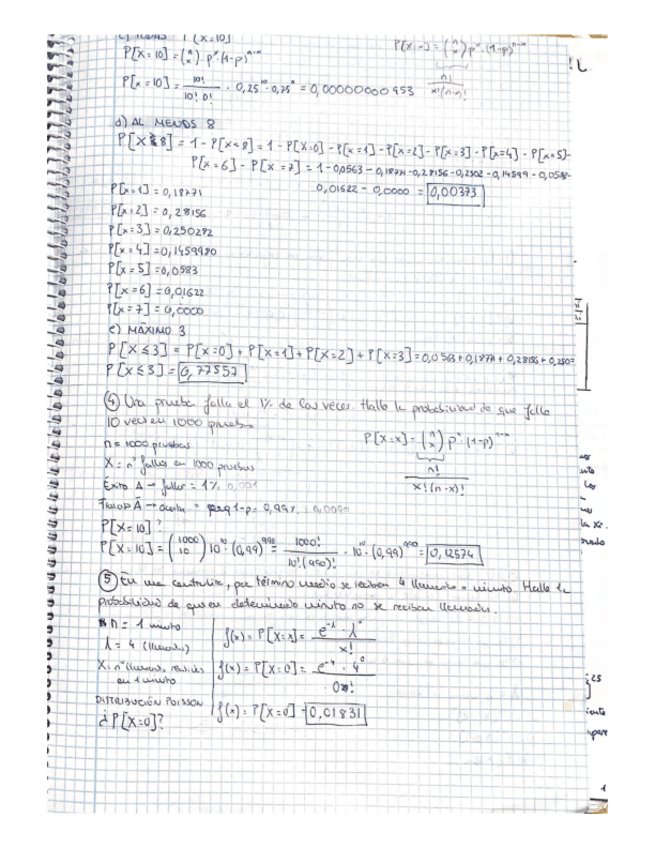 c) TODAS P[X=10]
P[X=10] = (n x) · pˣ (1-p)ⁿ⁻ˣ
P[X=x] = (n x) pˣ · (1-p)ⁿ⁻ˣ
n! / x!(n-x)!
P[x=10] = 10! / 10! 0! · 0,25¹⁰ · 0,75⁰ = 0,00000000953
d) AL MENOS 8
P[X≥8] = 1 - P[X<8] = 1 - P[X=0] - P[x=1] - P[x=2] - P[x=3] - P[x=4] - P[x=5] -
P[X=6] - P[X=7] = 1 - 0,0563 - 0,1877 - 0,28156 - 0,2502 - 0,14599 - 0,0583 -
0,01622 - 0,0000 = 0,00373
P[x=1] = 0,18771
P[x=2] = 0,28156
P[x=3] = 0,250282
P[x=4] = 0,1459980
P[x=5] = 0,0583
P[x=6] = 0,01622
P[x=7] = 0,0000
e) MÁXIMO 3
P[X≤3] = P[X=0] + P[X=1] + P[X=2] + P[X=3] = 0,0563 + 0,1877 + 0,28156 + 0,250=
P[X≤3] = 0,77557
④ Una prueba falla el 1% de las veces. Halla la probabilidad de que falle
10 veces en 1000 pruebas
n = 1000 pruebas
P[X=x] = (n x) pˣ · (1-p)ⁿ⁻ˣ
n! / x!(n-x)!
X = nº fallos en 1000 pruebas
Éxito A → fallar = 1%
Fracaso Ā → 1-p = 0,99%
P[X=10]?
P[X=10] = (1000 10) 10¹⁰ · (0,99)⁹⁹⁰ = 1000! / 10!(990)! · 10¹⁰ · (0,99)⁹⁹⁰ = 0,12574
⑤ En una centralita, por término medio se reciben 4 llamadas minuto. Halla la
probabilidad de que en determinado minuto no se reciban llamadas.
n = 1 minuto
λ = 4 (llamadas)
X = nº llamadas recibidas
en 1 minuto
DISTRIBUCIÓN POISSON
¿P[X=0]?
f(x) = P[X=x] = e^-λ · λˣ / x!
f(x) = P[X=0] = e⁻⁴ · 4⁰ / 0!
f(x) = P[X=0] = 0,01831